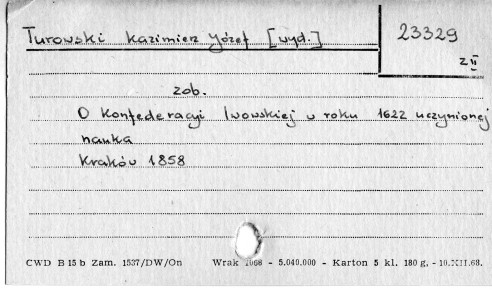 Turowski Kazimierz Józef [wyd.]
23329
z II
zob.
O Konfederacyi lwowskiej w roku 1622 uczynionej
nauka
Kraków 1858
CWD B 15 b Zam. 1537/DW/On Wrak 1068 - 5.040.000 - Karton 5 kl. 180 g. - 10.XII.68.